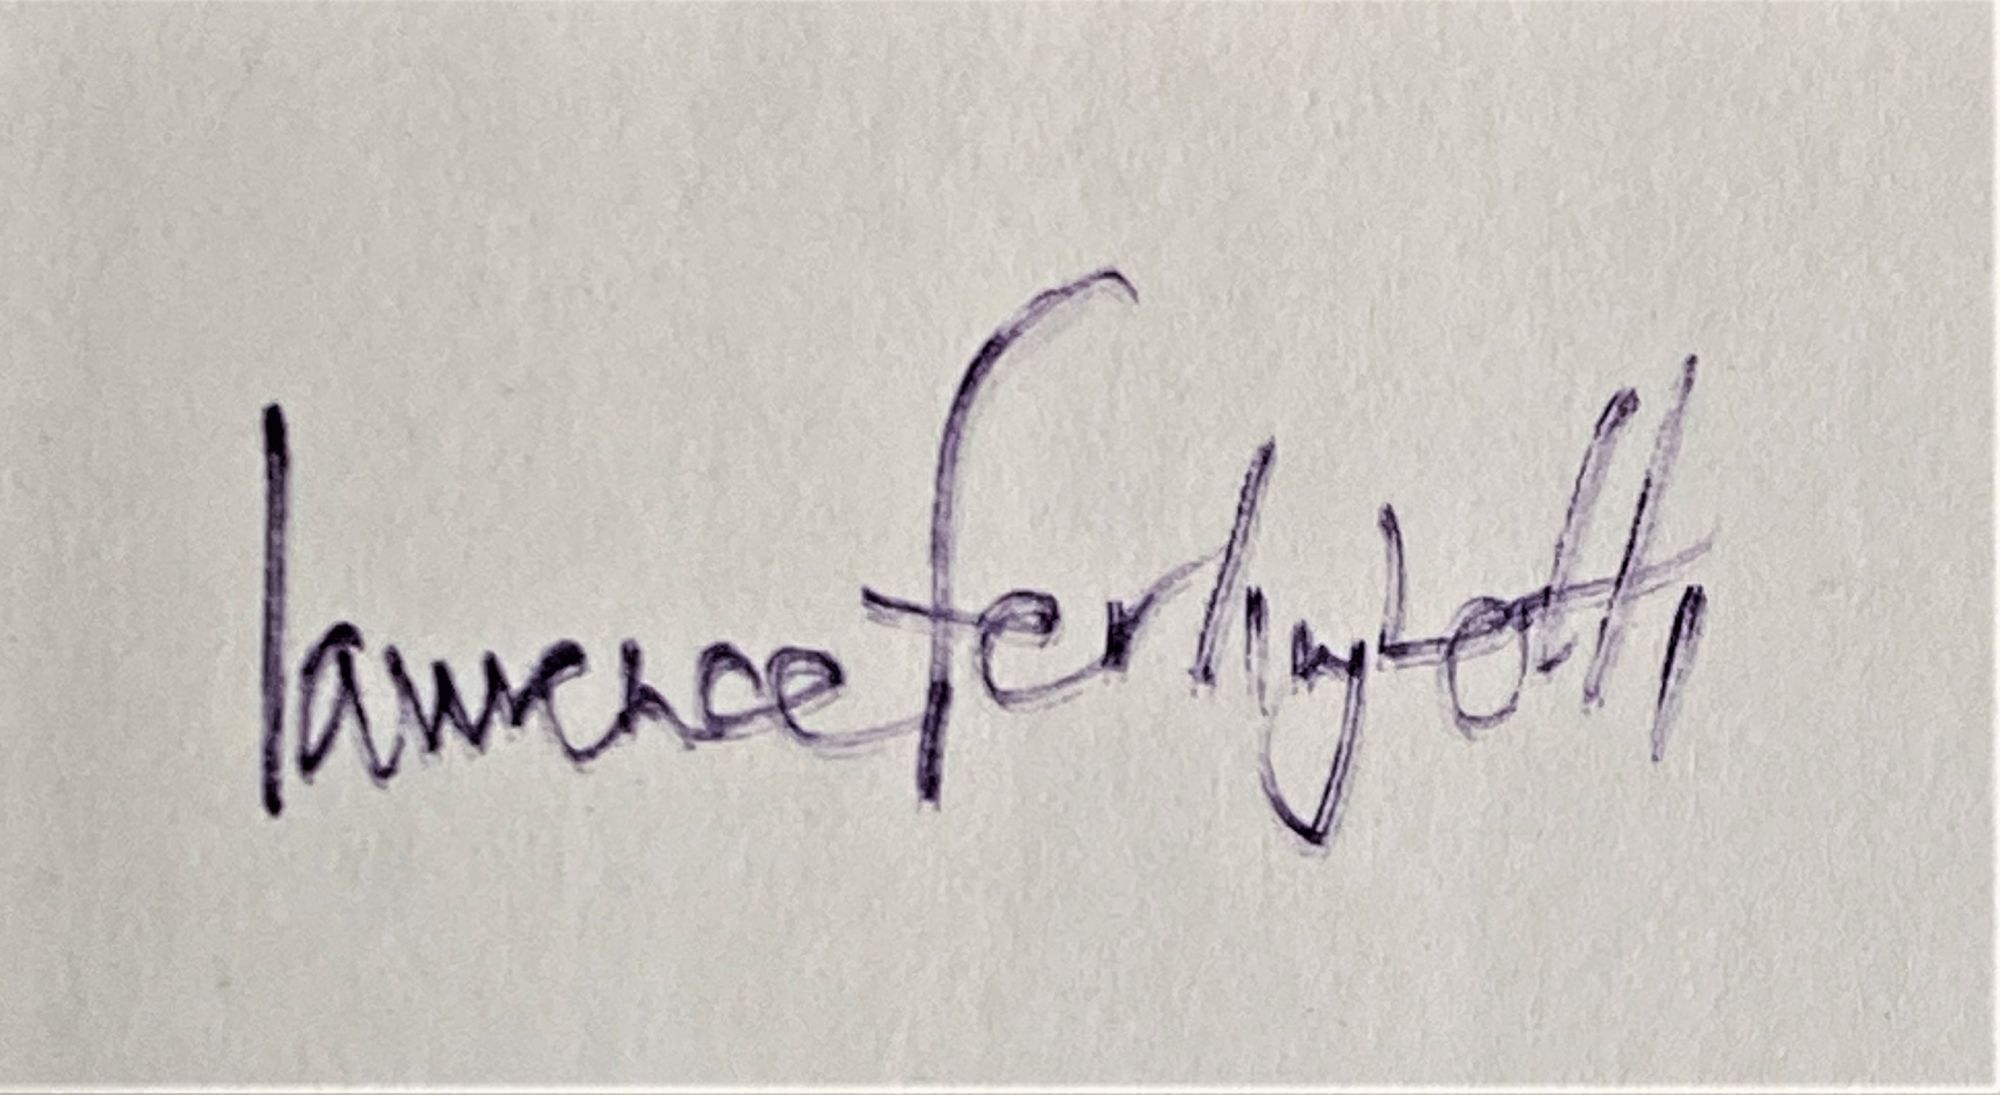 lawrence ferlinghetti